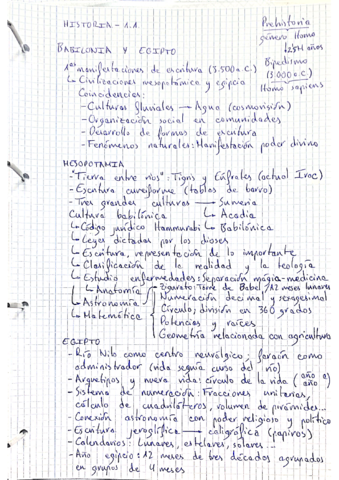 HISTORIA - 1.1
Prehistoria
género Homo
BABILONIA Y EGIPTO
Bipedismo
1as manifestaciones de escritura (3.500 a.C.)
Homo sapiens
↳ Civilizaciones mesopotámica y egipcia
Coincidencias:
- Culturas fluviales → Agua (cosmovisión)
- Organización social en comunidades
- Desarrollo de formas de escritura
- Fenómenos naturales: Manifestación poder divino
MESOPOTAMIA
- "Tierra entre ríos": Tigris y Eúfrates (actual Irac)
- Escritura cuneiforme (tablas de barro)
- Tres grandes culturas → Sumeria
Cultura babilónica ↳ Acadia
↳ Código jurídico Hammurabi ↳ Babilónica
↳ Leyes dictadas por los dioses
↳ Escritura, representación de lo importante
↳ Clasificación de la realidad y la teología
↳ Estudio enfermedades: Separación magia-medicina
↳ Anatomía
Zigurats Torre de Babel / 12 meses lunares
↳ Astronomía
Numeración decimal y sexagesimal
Círculo; división en 360 grados
↳ Matemática
Potencias y raíces
Geometría relacionada con agricultura
EGIPTO
- Río Nilo como centro neurálgico; faraón como
administrador (vida seguía curso del río)
- Arquetipos y nueva vida: círculo de la vida (año a año)
- Sistema de numeración: Fracciones unitarias,
cálculo de cuadriláteros, volumen de pirámides...
- Conexión astronomía con poder religioso y político
- Escritura jeroglífica → caligráfica (papiros)
- Calendarios: Lunares, estelares, solares...
- Año egipcio: 12 meses de tres décadas agrupados
en grupos de 4 meses